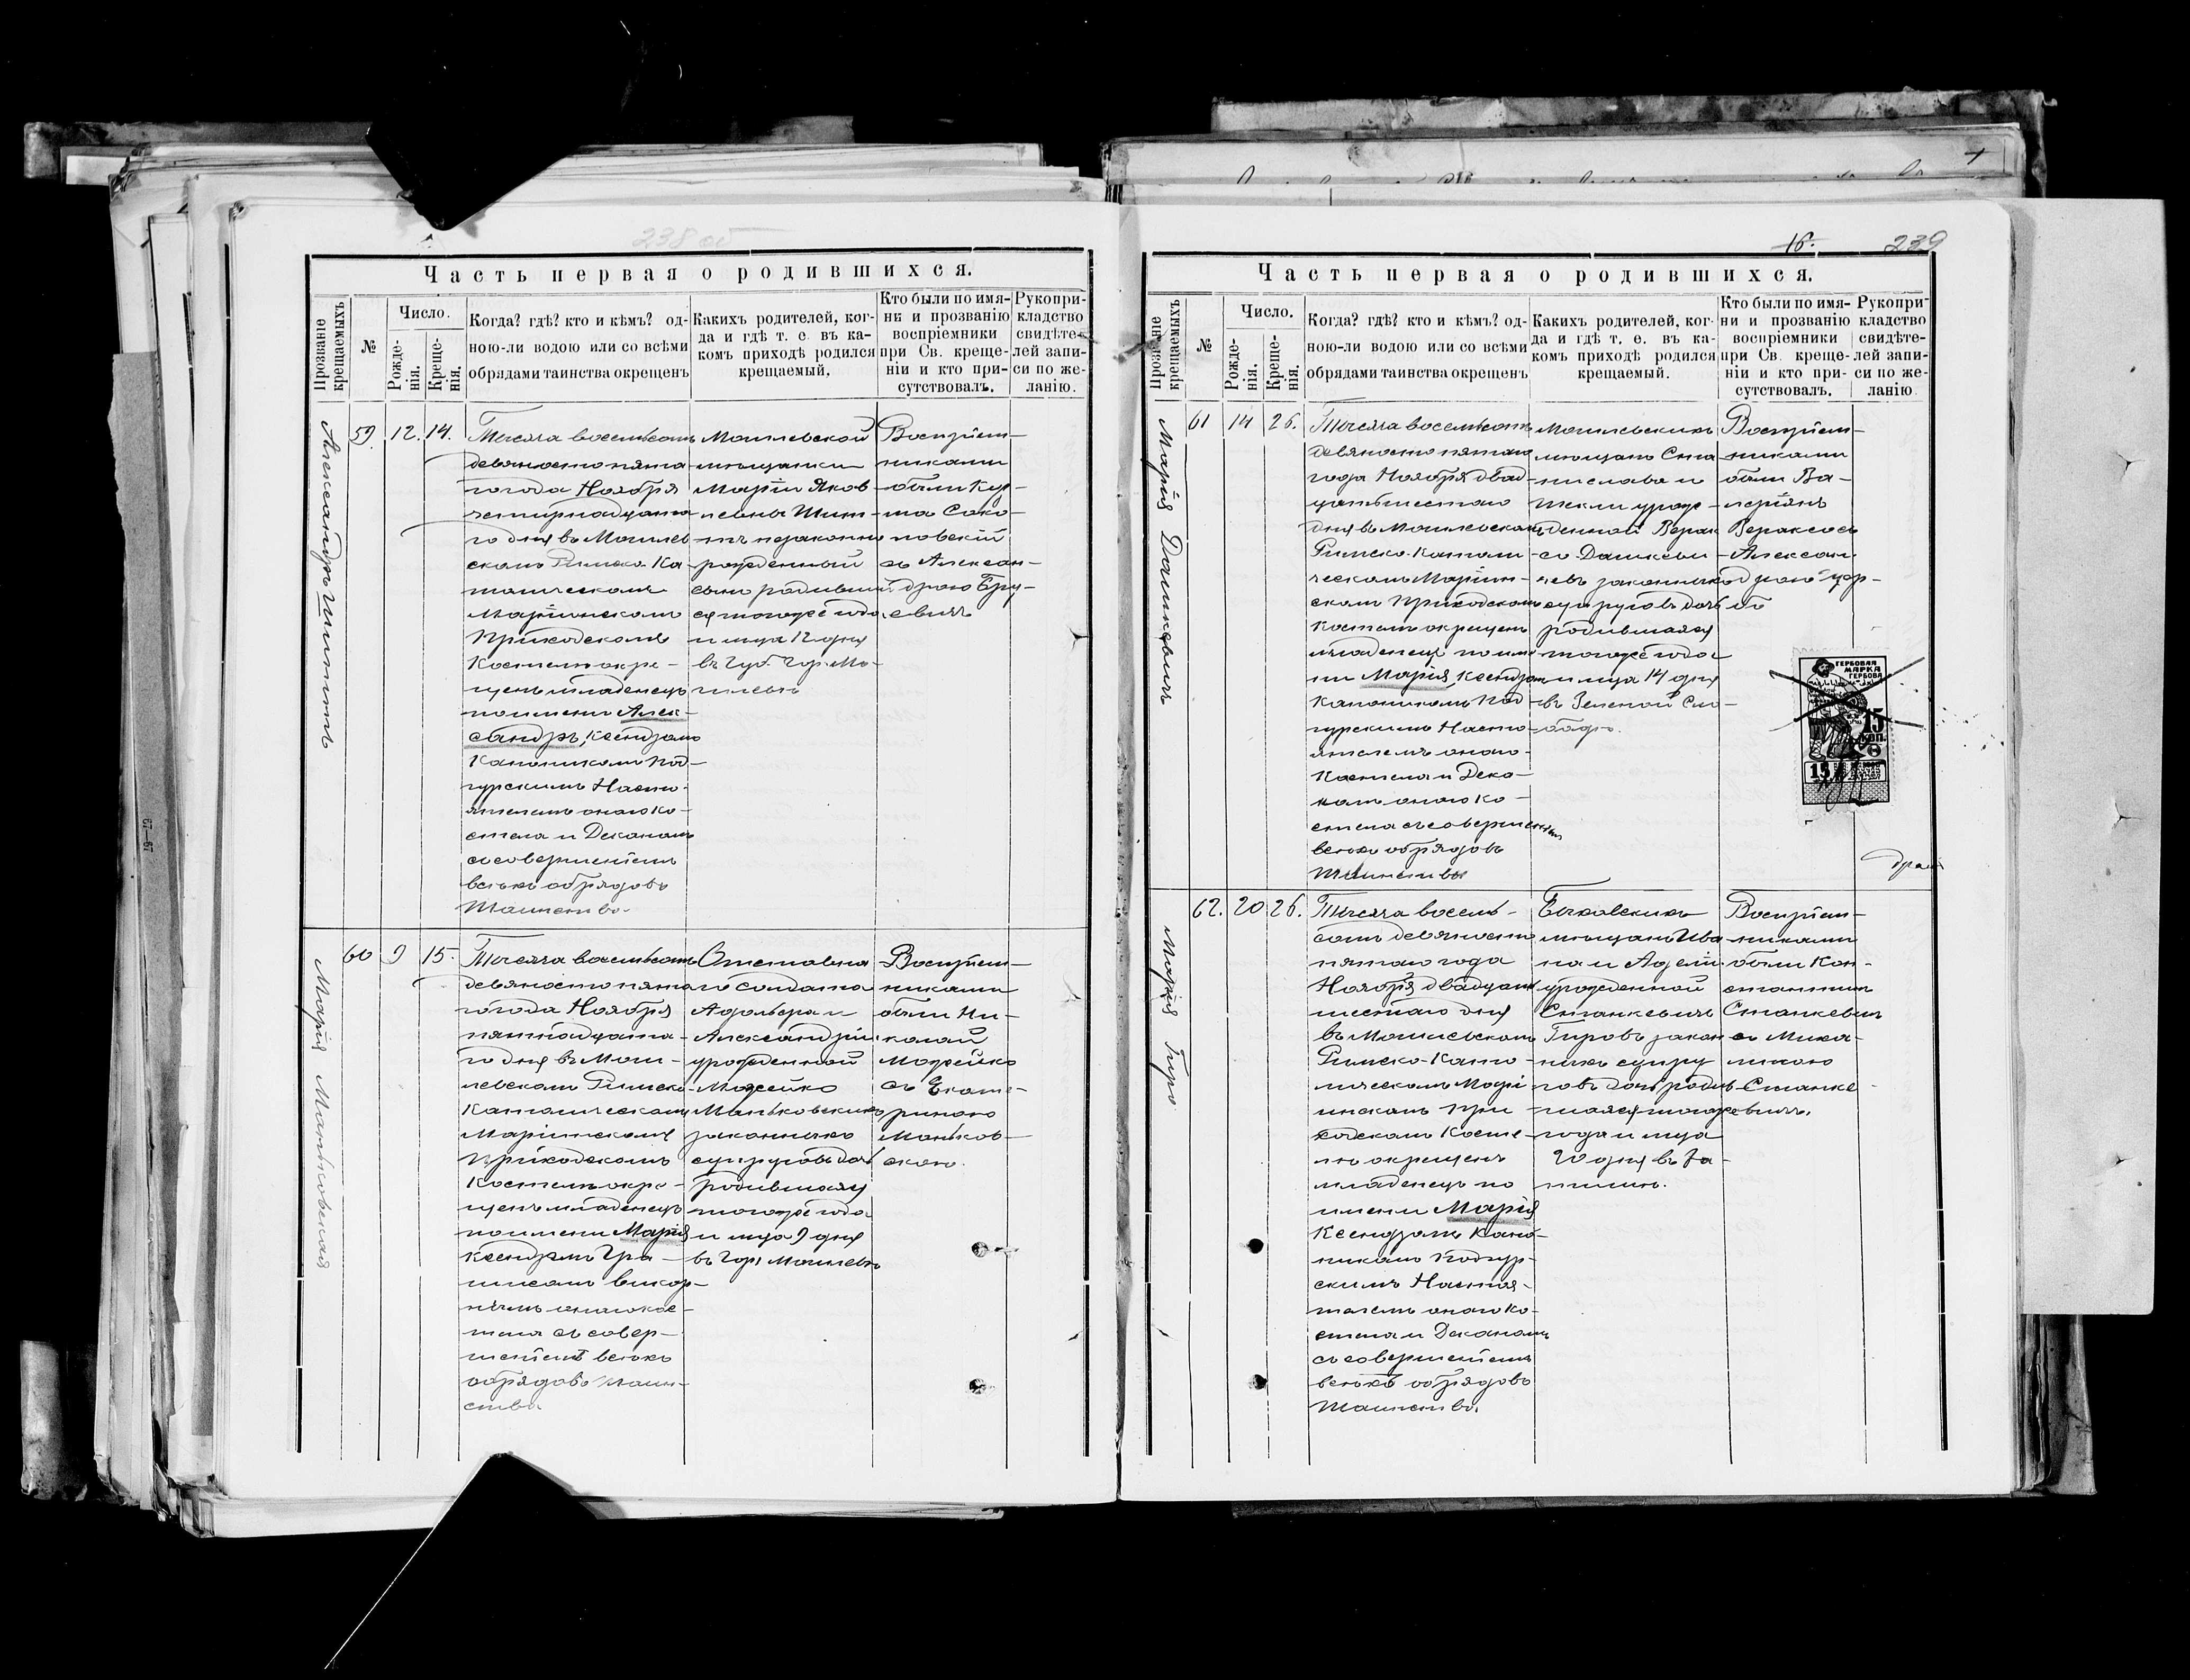 238 об
Часть первая о родившихся.
Прозваніе крещаемыхъ
№
Число.
Рожде-
нія.
Креще-
нія.
Когда? гдѣ? кто и кѣмъ? од-
ною-ли водою или со всѣми
обрядами таинства окрещенъ
Какихъ родителей, ког-
да и гдѣ т. е. въ ка-
комъ приходѣ родился
крещаемый.
Кто были по имя-
ни и прозванію
воспріемники
при Св. креще-
ніи и кто при-
сутствовалъ.
Рукопри-
кладство
свидѣте-
лей запи-
си по же-
ланію.
Александръ Шиттъ
59.
12.
14.
Тысяча восемьсотъ
девяносто пята
го года Ноября
четырнадцата
го дня въ Могилев
скомъ Римско-Ка
толическомъ
Маріинскомъ
Приходскомъ
Костелѣ окре-
щенъ младенецъ
по имени Алек-
сандръ, Ксендзомъ
Каноникомъ Под-
гурскимъ Насто-
ятелемъ онаго Ко-
стела и Деканомъ
съ совершеніемъ
всѣхъ обрядовъ
Таинства.
Могилевской
мѣщанки
Маріи Яков
левны Шит-
тъ незаконно
рожденный
сынъ родивший
ся тогоже года
и мца 12 дня
въ Губ. Гор. Мо-
гилевѣ
Воспріем-
никами
были Ку-
ма Соко-
ловскій
съ Алексан-
дрою Бру-
евичъ
Марія Маньковская
60
9
15.
Тысяча восемьсотъ
девяносто пята
го года Ноября
пятнадцата-
го дня въ Моги-
левскомъ Римско-
Католическомъ
Маріинскомъ
Приходскомъ
Костелѣ окре-
щенъ младенецъ
по имени Марія
Ксендзомъ Гра-
писомъ викар-
нымъ онаго Кос-
тела съ совер-
шеніемъ всѣхъ
обрядовъ Таин-
ства.
Отставна
го солдата
Адольфа и
Александріи
урожденной
Можейко
Маньковскихъ
законныхъ
супруговъ дочь
родившаяся
тогоже года
и мца 9 дня
въ Гор. Могилевѣ
Воспріем-
никами
были Ни-
колай
Можейко
съ Екате-
риною
Маньков-
скою.
16.
239
Часть первая о родившихся.
Прозваніе крещаемыхъ
№
Число.
Рожде-
нія.
Креще-
нія.
Когда? гдѣ? кто и кѣмъ? од-
ною-ли водою или со всѣми
обрядами таинства окрещенъ
Какихъ родителей, ког-
да и гдѣ т. е. въ ка-
комъ приходѣ родился
крещаемый.
Кто были по имя-
ни и прозванію
воспріемники
при Св. креще-
ніи и кто при-
сутствовалъ.
Рукопри-
кладство
свидѣте-
лей запи-
си по же-
ланію
Марія Дашкевичъ
61
14
26.
Тысяча восемьсотъ
девяносто пятаго
года Ноября двад-
цатьшестаго
дня въ Могилевскомъ
Римско-Католи-
ческомъ Маріин-
скомъ Приходскомъ
Костелѣ окрещенъ
младенецъ по име
ни Марія, Ксендзомъ
Каноникомъ Под-
гурскимъ Насто-
ятелемъ онаго
Костела и Дека-
номъ онаго Ко-
стела съ совершеніемъ
всѣхъ обрядовъ
Таинства
Могилевскихъ
мѣщанъ Ста
нислава и
Теклы урож-
денной Верак
со Дашкеви
чевъ законныхъ
супруговъ дочь
родившаяся
тогоже года
и мца 14 дня
въ Зеленой Сло-
бодѣ.
Воспріем-
никами
были Ва-
леріянъ
Вераксовъ
Алексан-
ГЕРБОВАЯ
МАРКА
ГЕРБОВА
15
коп.
15
Марія Гиро
62.
20
26.
Тысяча восемь-
сотъ девяносто
пятаго года
Ноября двадцать
шестаго дня
въ Могилевскомъ
Римско-Като-
лическомъ Марі
инскомъ При
ходскомъ Косте-
лѣ окрещенъ
младенецъ по
имени Марія
Ксендзомъ Кано-
никомъ Подгур-
скимъ Настоя-
телемъ онаго Ко-
стела и Деканомъ
съ совершеніемъ
всѣхъ обрядовъ
Таинства.
Быховскихъ
мѣщанъ Ива
на и Аделіи
урожденной
Станкевичъ
Гировъ закон
ныхъ супру
говъ дочь родив
шаяся тогоже
года и мца
20 дня въ
Воспріем-
никами
были Кон-
стантинъ
Станкевичъ
съ Миха-
линою
Станке
вичъ.